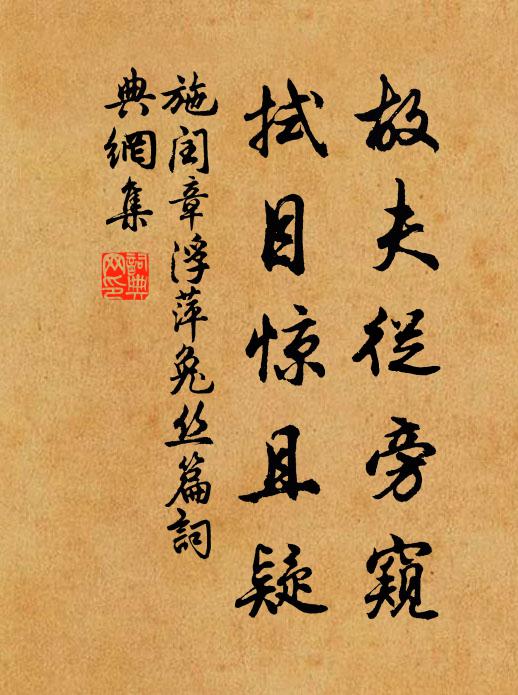 故夫從旁窺
拭目惊且疑
施闰章浮萍兔丝篇詞
典網集
詞典網印